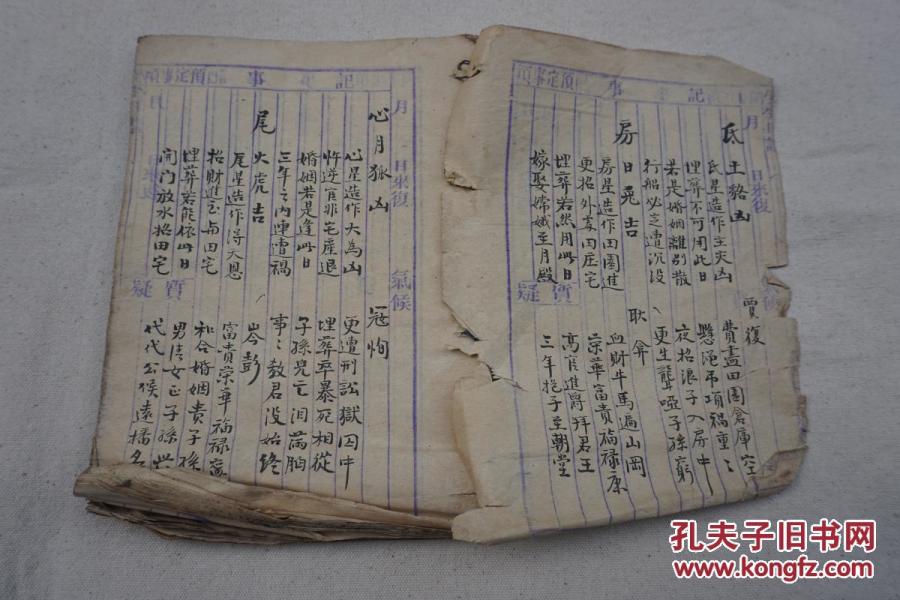 記 事
預定事項
月
日
來復
氣候
質疑
氐
土貉凶
賈復
氐星造作主灾凶
費盡田園倉庫空
埋葬不可用此日
懸繩吊項禍重〻
若是婚姻離別散
夜招浪子入房中
行船必定遭沉没
更生聾啞子孫窮
房
日兎吉
耿弇
房星造作田園進
血財牛馬遍山岡
更招外處田庄宅
荣華富貴福禄康
埋葬若然用此日
高官進爵拜君王
嫁娶嫦娥至月殿
三年抱子至朝堂
記 事
預定事項
月
日
來復
氣候
質疑
心月狐凶
冦恂
心星造作大為凶
更遭刑訟獄囚中
忤逆官非宅產退
埋葬卒暴死相從
婚姻若是逢此日
子孫兒亡泪滿胸
三年之内連遭禍
事〻教君没始終
尾
火虎吉
岑彭
尾星造作得天恩
富貴荣華福禄
招財進宝与田宅
和合婚姻貴子孫
埋葬若能依此日
男清女正子孫
開门放水招田宅
代代公侯遠播名
孔夫子旧书网
www.kongfz.com